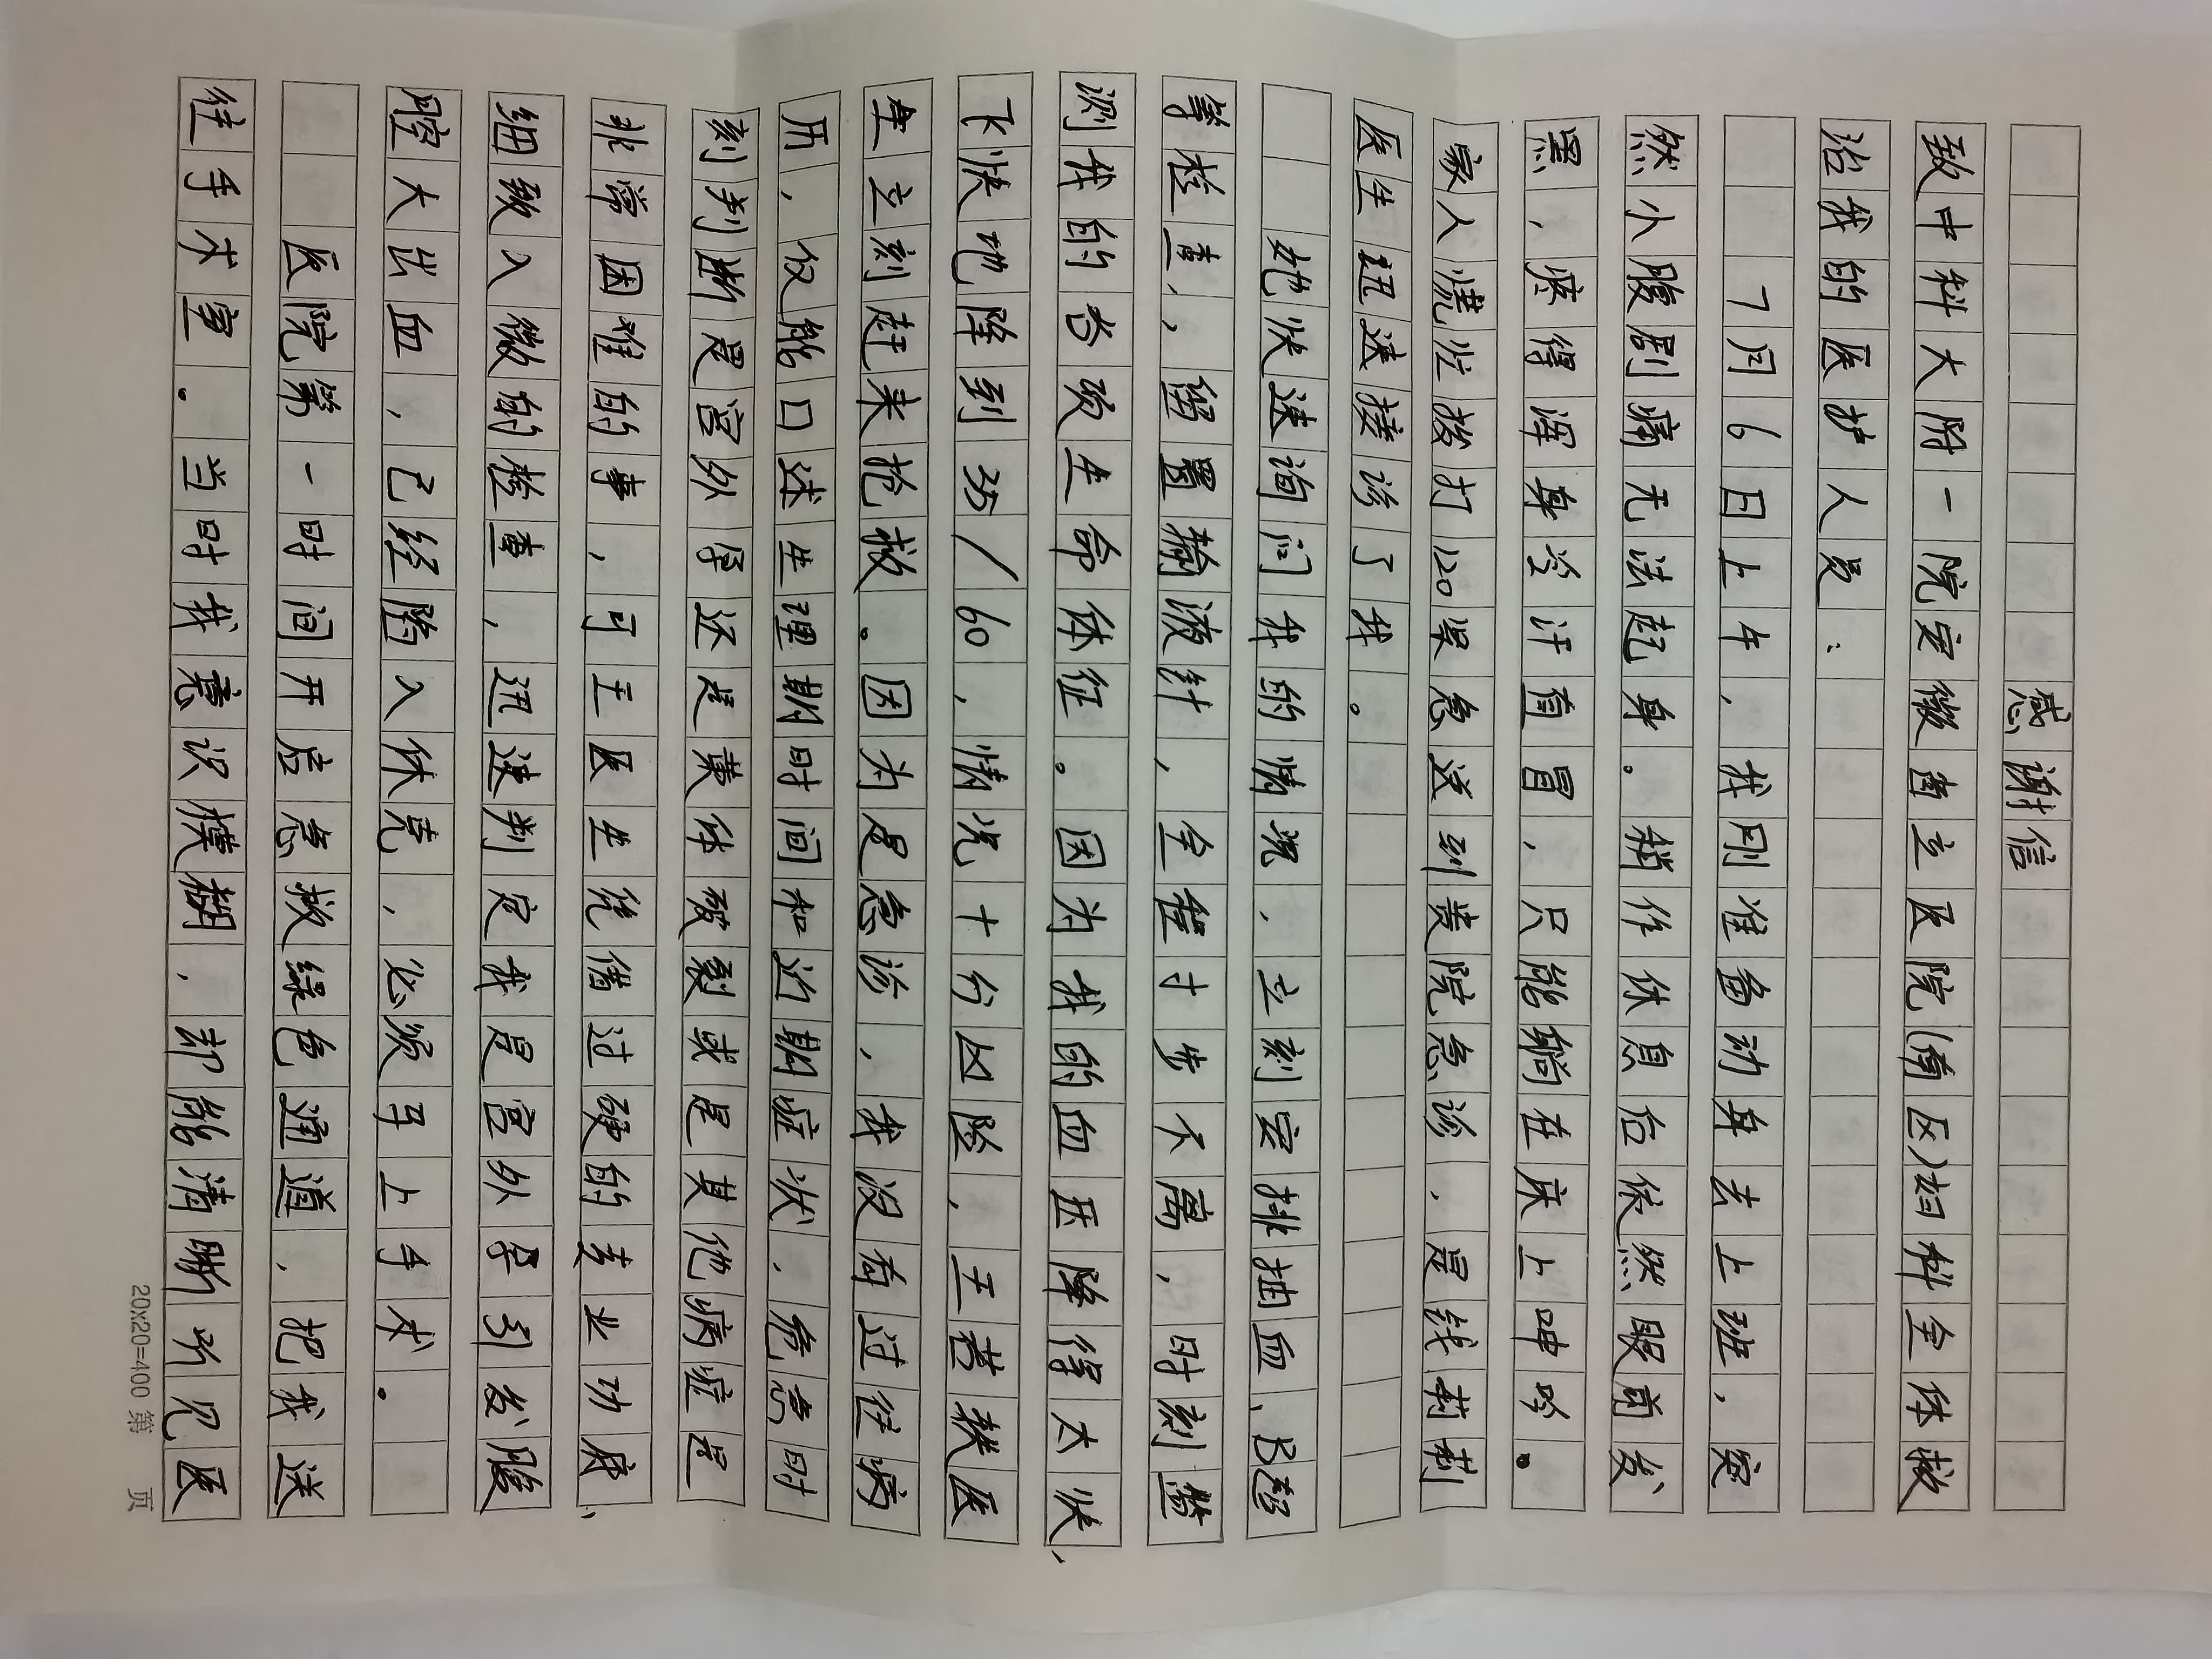 感谢信
致中科大附一院安徽省立医院(南区)妇科全体救
治我的医护人员:
7月6日上午,我刚准备动身去上班,突
然小腹剧痛无法起身。稍作休息后依然眼前发
黑,疼得浑身冷汗直冒,只能躺在床上呻吟。
家人慌忙拨打120紧急送到贵院急诊,是钱莉莉
医生迅速接诊了我。
她快速询问我的情况,立刻安排抽血、B超
等检查,留置输液针,全程寸步不离,时刻监
测我的各项生命体征。因为我的血压降得太快,
飞快地降到35/60,情况十分凶险,王若楼医
生立刻赶来抢救。因为是急诊,我没有过往病
历,仅能口述生理期时间和近期症状,危急时
刻判断是宫外孕还是黄体破裂或是其他病症是
非常困难的事,可王医生凭借过硬的专业功底、
细致入微的检查,迅速判定我是宫外孕引发腹
腔大出血,已经陷入休克,必须马上手术。
医院第一时间开启急救绿色通道,把我送
往手术室。当时我意识模糊,却能清晰听见医
20×20=400 第 页